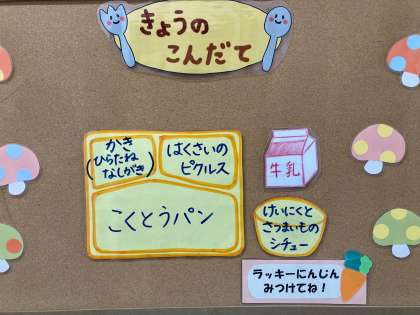 きょうの
こんだて
かき
(ひらたね
なしがき)
はくさいの
ピクルス
こくとうパン
牛乳
けいにくと
さつまいもの
シチュー
ラッキーにんじん
みつけてね！